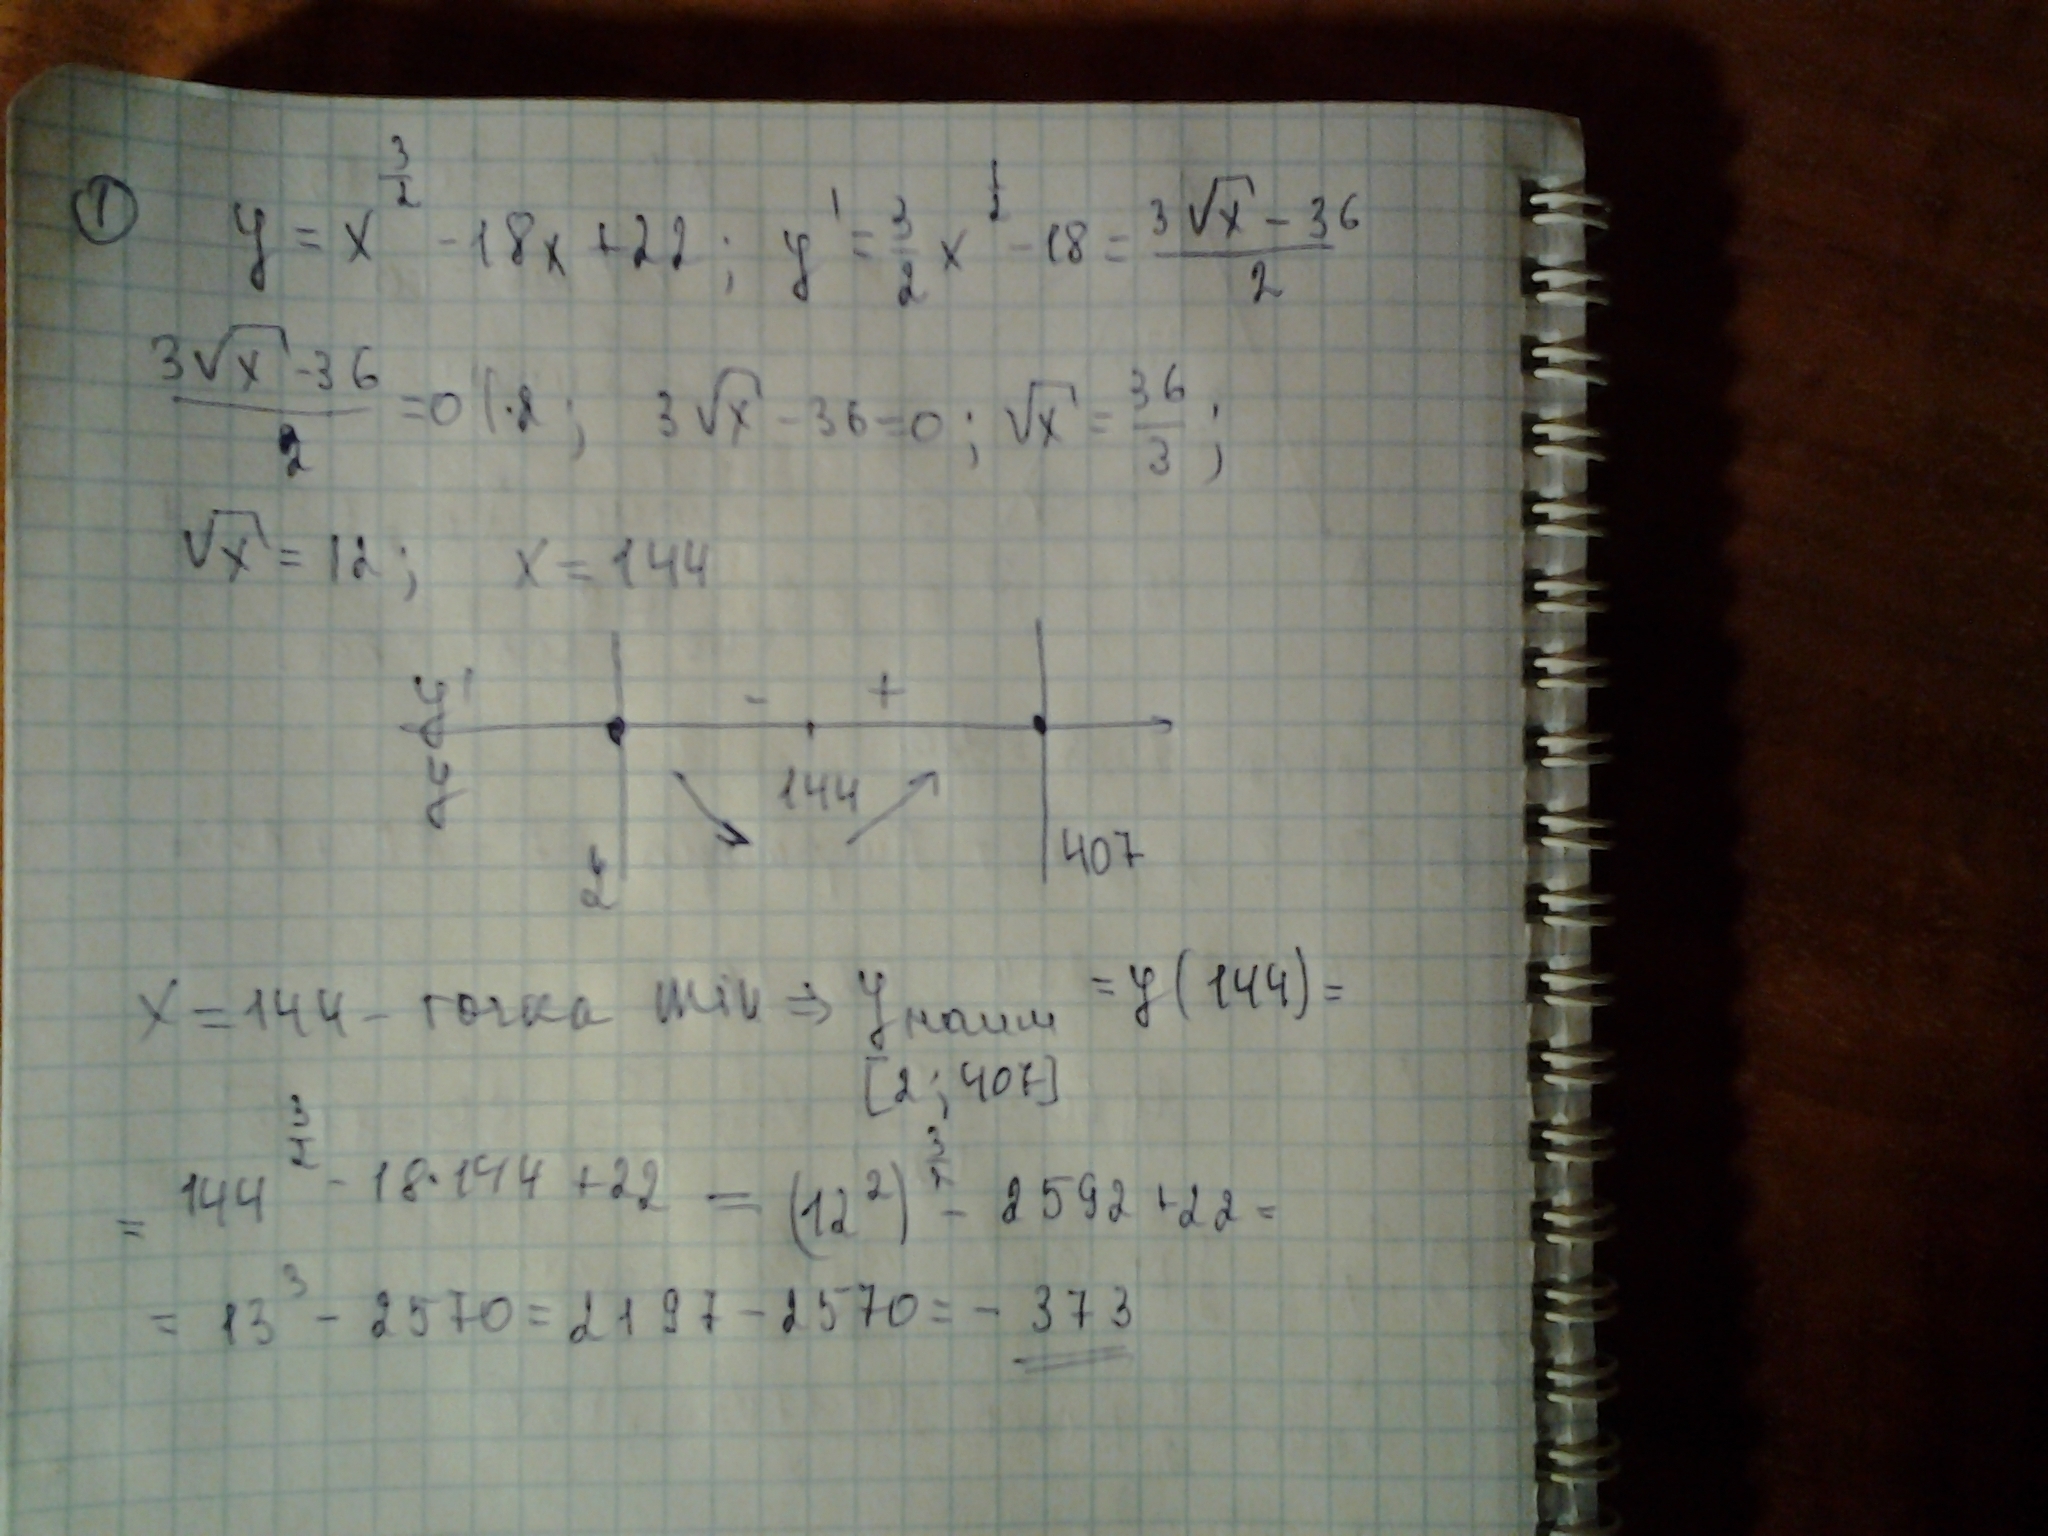 ① y = x^(3/2) - 18x + 22; y' = 3/2 x^(1/2) - 18 = (3√x - 36)/2
(3√x - 36)/2 = 0 | · 2; 3√x - 36 = 0; √x = 36/3;
√x = 12; x = 144
y' - +
y 144
2 407
x = 144 - точка min ⇒ y наим = y(144) =
[2; 407]
= 144^(3/2) - 18·144 + 22 = (12²)^(3/2) - 2592 + 22 =
= 13³ - 2570 = 2197 - 2570 = - 373